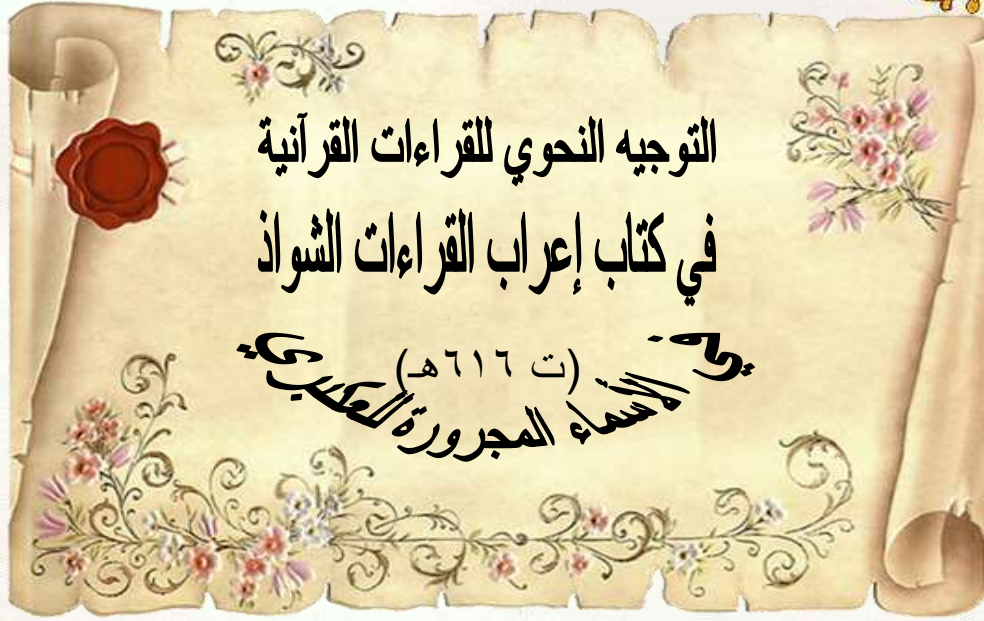 التوجيه النحوي للقراءات القرآنية
في كتاب إعراب القراءات الشواذ
الأسماء المجرورة للعكبري
(ت ٦١٦هـ)